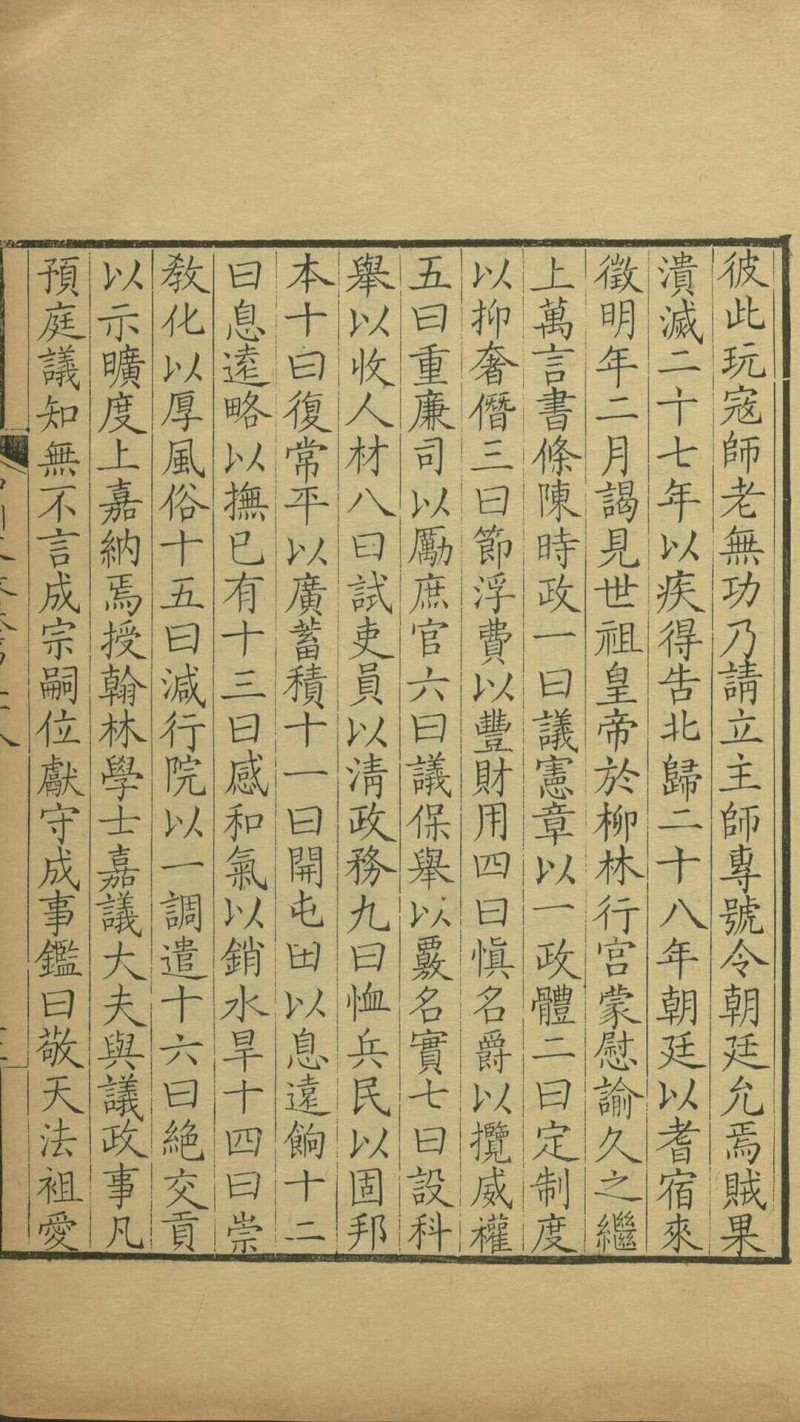 彼此玩寇師老無功乃請立主師專號令朝廷允焉賊果
潰滅二十七年以疾得告北歸二十八年朝廷以耆宿來
徵明年二月謁見世祖皇帝於柳林行宮蒙慰諭久之繼
上萬言書條陳時政一曰議憲章以一政體二曰定制度
以抑奢僭三曰節浮費以豐財用四曰愼名爵以攬威權
五曰重廉司以勵庶官六曰議保舉以覈名實七曰設科
舉以收人材八曰試吏員以清政務九曰恤兵民以固邦
本十曰復常平以廣蓄積十一曰開屯田以息遠餉十二
曰息遠略以撫已有十三曰感和氣以銷水旱十四曰崇
敎化以厚風俗十五曰減行院以一調遣十六曰絶交貢
以示曠度上嘉納焉授翰林學士嘉議大夫與議政事凡
預庭議知無不言成宗嗣位獻守成事鑑曰敬天法祖愛